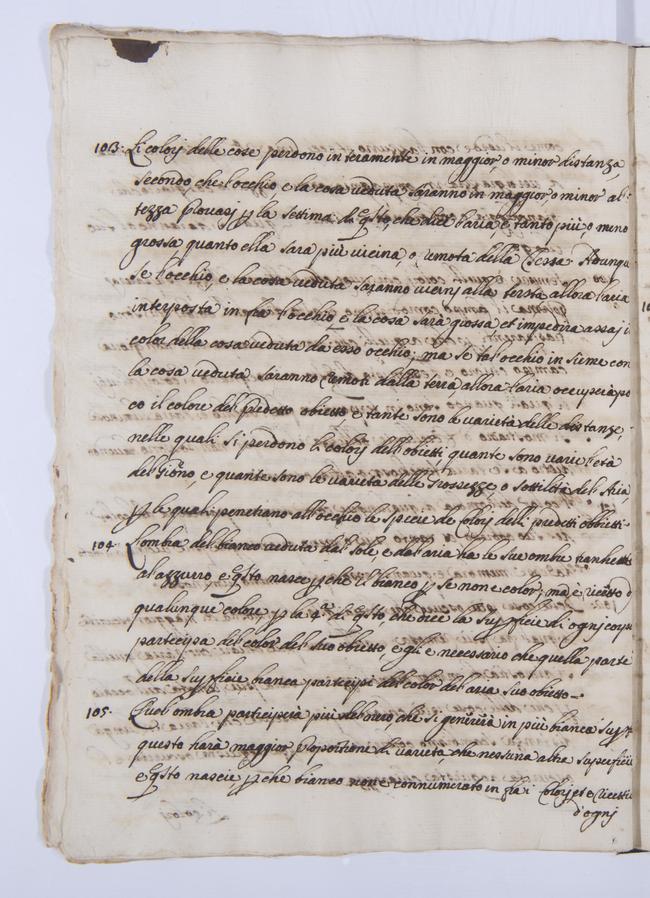 103. Li colorj delle cose perdono interamente in maggior, o minor distanza,
secondo, che l'occhio e la cosa veduta saranno in maggior o minor al:
tezza provasj p la settima di qsto, che dice l'aria è tanto più o meno
grossa quanto ella sara più vicina, o remota della terra. Adunqu
se l'occhio, e la cosa veduta saranno vicinj alla terra allora l'aria
interposta in fra l'occhio e la cosa sarà grossa et impedira assaj i
color della cosa veduta da esso occhio; ma se tal occhio in sieme con
la cosa veduta saranno remoti dalla terra, allora l'aria occuperà po
co il colore del predetto obietto, e tante sono le varietà delle distanze,
nelle quali si perdono li colorj dell'obietti, quante sono varie l'età
del Giorno, e quante sono le varietà delle Grossezze, o Sottilità del Aria,
p le quali penetrano all'occhio le specie de Colorj delli predetti obbietti.
104. L'ombra del bianco veduta dal Sole, e dal aria ha le sue ombre
al azzurro, e qsto nasce pche il bianco p se non e color, ma e ricetto d
qualunque colore, p la 4.ª di qsto che dice la Supficie di ognj corpo
partecipa del color del suo obietto, e gli e necessario che quella parte
della supficie bianca partecipi del color del aria suo obietto.
105. Quel ombra participerà più del nero, che si genirerà in più bianca
questo harà maggior proportione di varietà, che nessuna altra superficie
e qsto nascie pche bianco non e connumerato in fra i Colorj, et e ricettiu
d'ognj